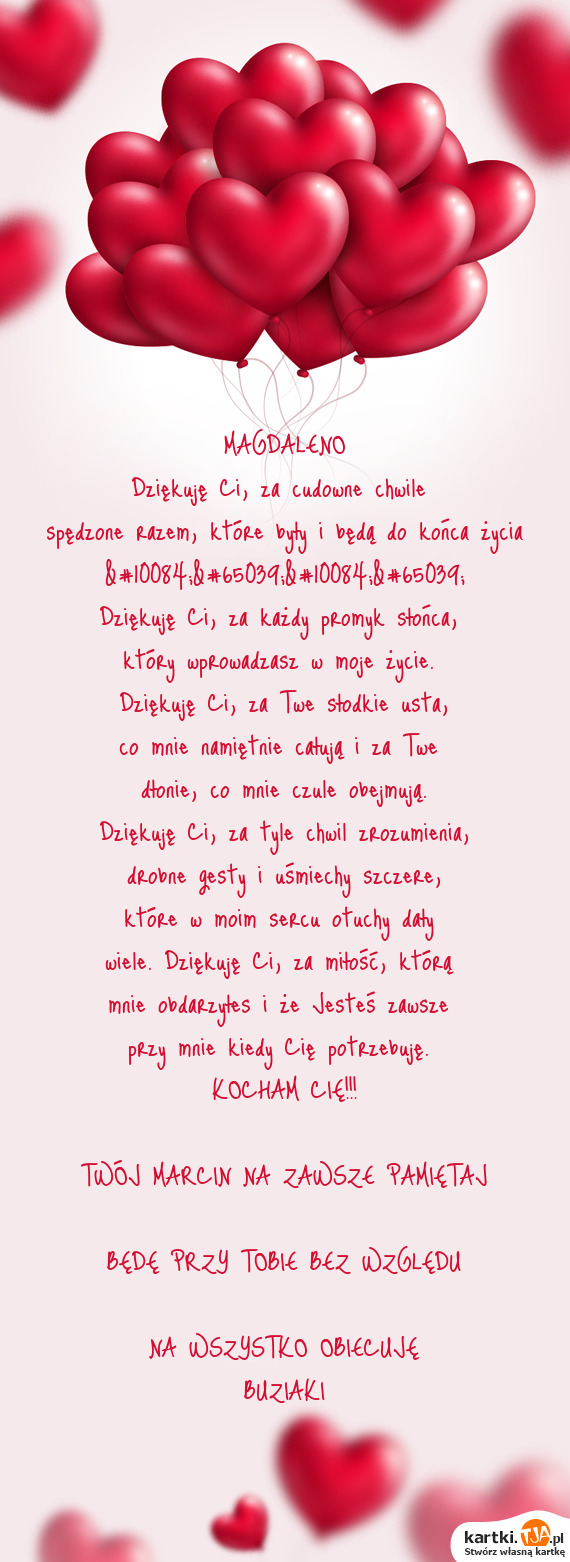 MAGDALENO
Dziękuję Ci, za cudowne chwile
spędzone razem, które były i będą do końca życia
&#10084;&#65039;&#10084;&#65039;
Dziękuję Ci, za każdy promyk słońca,
który wprowadzasz w moje życie.
Dziękuję Ci, za Twe słodkie usta,
co mnie namiętnie całują i za Twe
dłonie, co mnie czule obejmują.
Dziękuję Ci, za tyle chwil zrozumienia,
drobne gesty i uśmiechy szczere,
które w moim sercu otuchy dały
wiele. Dziękuję Ci, za miłość, którą
mnie obdarzyłes i że Jesteś zawsze
przy mnie kiedy Cię potrzebuję.
KOCHAM CIĘ!!!
TWÓJ MARCIN NA ZAWSZE PAMIĘTAJ
BĘDĘ PRZY TOBIE BEZ WZGLĘDU
NA WSZYSTKO OBIECUJĘ
BUZIAKI
kartki.TJA.pl
Stwórz własną kartkę